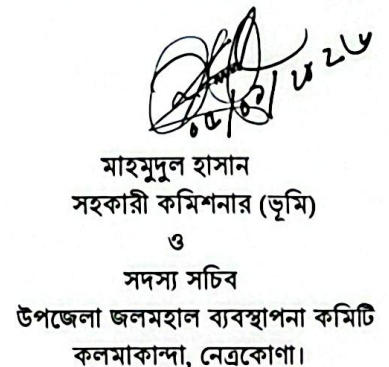 মাহমুদুল হাসান
সহকারী কমিশনার (ভূমি)
ও
সদস্য সচিব
উপজেলা জলমহাল ব্যবস্থাপনা কমিটি
কলমাকান্দা, নেত্রকোণা।